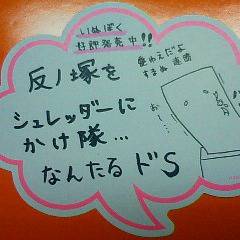 いぬぼく
好評発売中!!
反ノ塚を
シュレッダーに
かけ隊…
なんたる ドS
愛ゆえだよ
すまぬ 連勝
お…